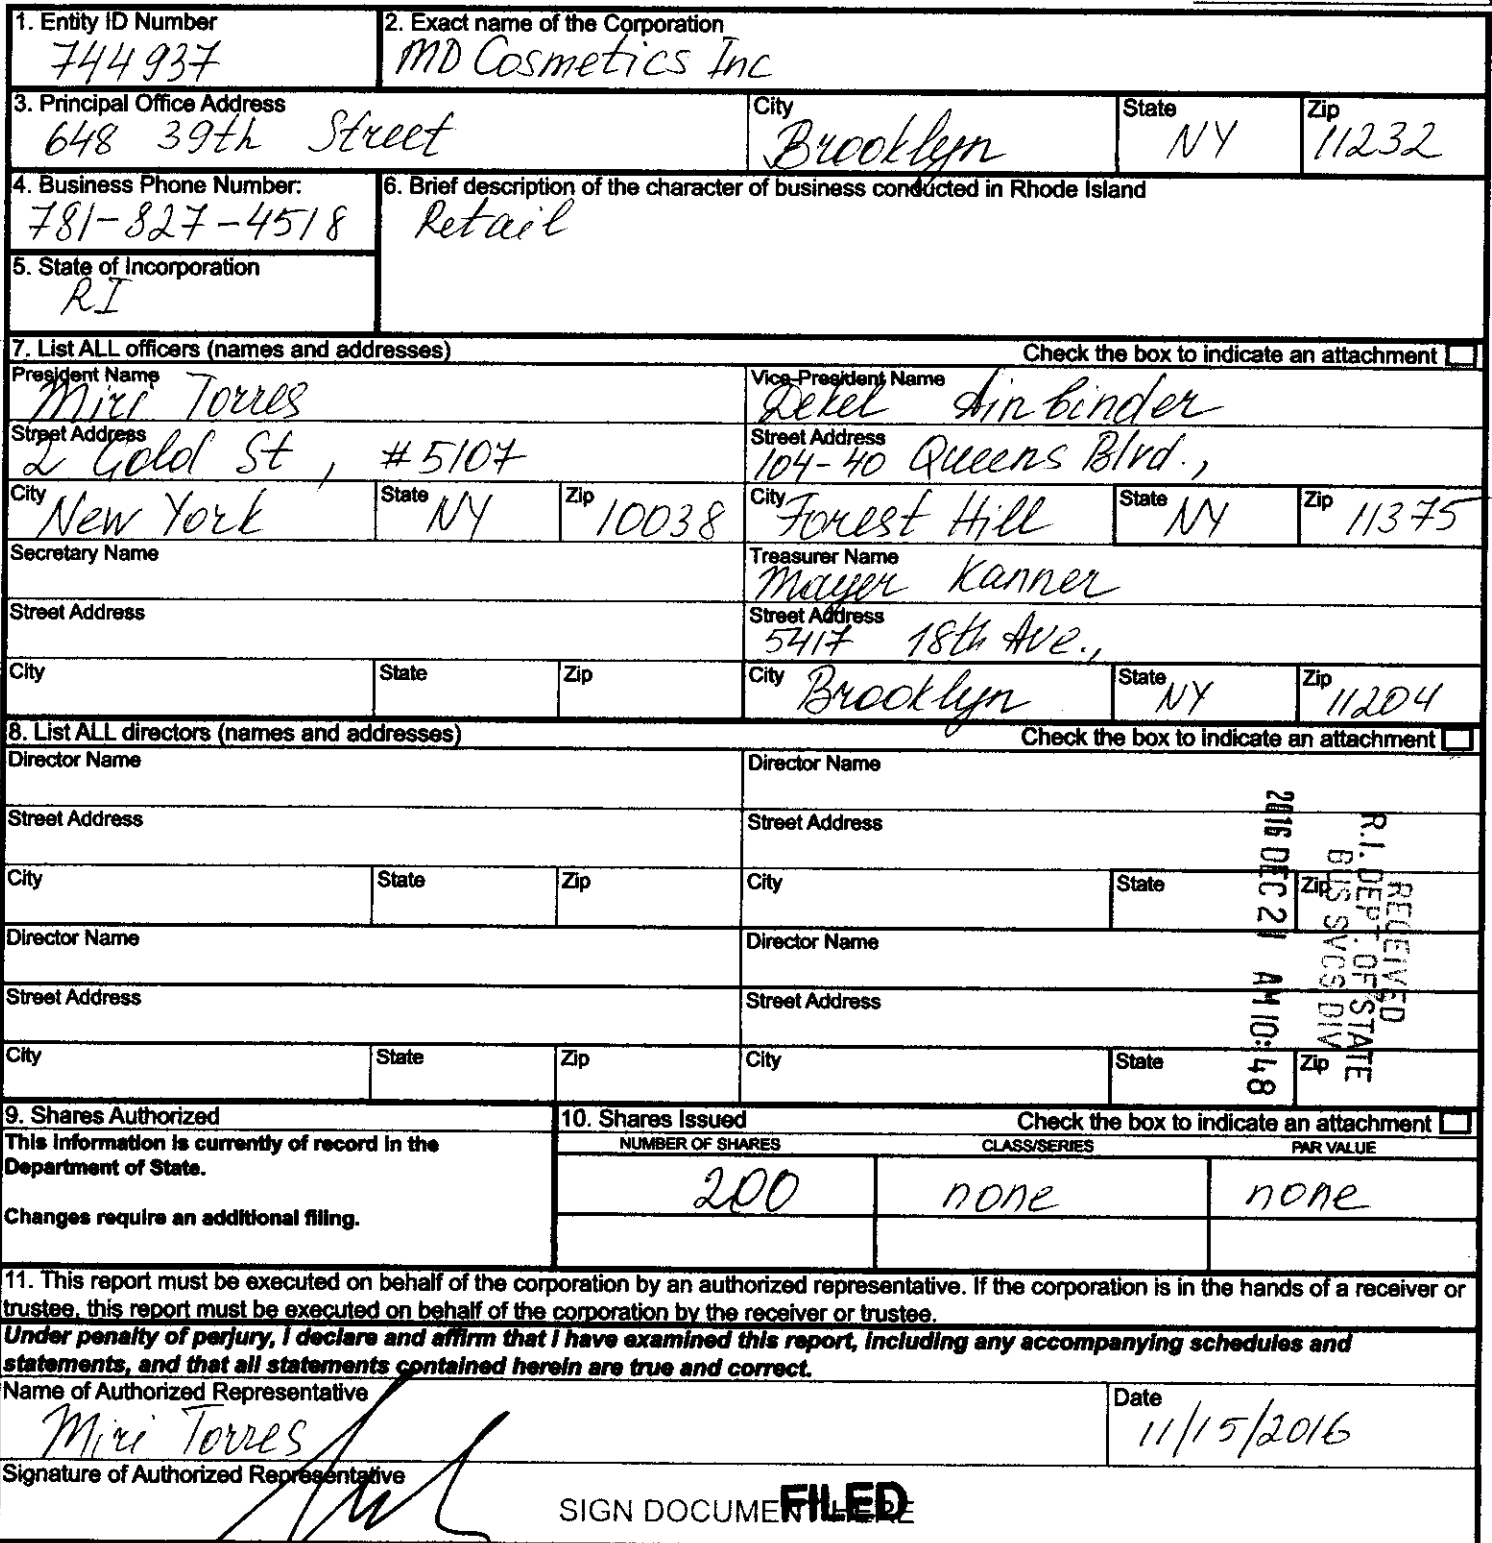 1. Entity ID Number
744937
2. Exact name of the Corporation
MD Cosmetics Inc
3. Principal Office Address
648 39th Street
City
Brooklyn
State
NY
Zip
11232
4. Business Phone Number:
781-827-4518
6. Brief description of the character of business conducted in Rhode Island
Retail
5. State of Incorporation
RI
7. List ALL officers (names and addresses)
Check the box to indicate an attachment
President Name
Miri Torres
Vice-President Name
Dekel Ainbinder
Street Address
2 Gold St , #5107
Street Address
104-40 Queens Blvd.,
City
New York
State
NY
Zip
10038
City
Forest Hill
State
NY
Zip
11375
Secretary Name
Treasurer Name
Mayer Kanner
Street Address
Street Address
5417 18th Ave.,
City
State
Zip
City
Brooklyn
State
NY
Zip
11204
8. List ALL directors (names and addresses)
Check the box to indicate an attachment
Director Name
Director Name
Street Address
Street Address
City
State
Zip
City
State
Zip
Director Name
Director Name
Street Address
Street Address
City
State
Zip
City
State
Zip
RECEIVED
R.I. DEPT. OF STATE
BUS SVCS DIV
2016 DEC 21 AM 10:48
9. Shares Authorized
This information is currently of record in the
Department of State.
Changes require an additional filing.
10. Shares Issued
Check the box to indicate an attachment
NUMBER OF SHARES
CLASS/SERIES
PAR VALUE
200
none
none
11. This report must be executed on behalf of the corporation by an authorized representative. If the corporation is in the hands of a receiver or
trustee, this report must be executed on behalf of the corporation by the receiver or trustee.
Under penalty of perjury, I declare and affirm that I have examined this report, including any accompanying schedules and
statements, and that all statements contained herein are true and correct.
Name of Authorized Representative
Miri Torres
Date
11/15/2016
Signature of Authorized Representative
SIGN DOCUMENT HERE
FILED